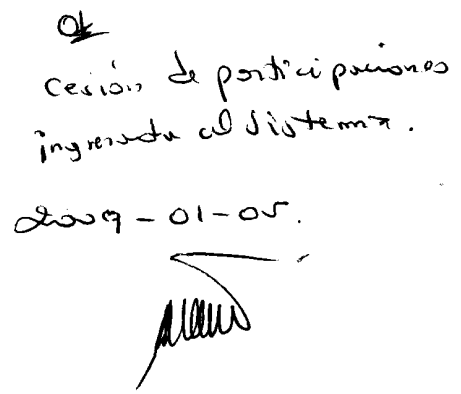 OK
Cesión de participaciones
ingresada al sistema.
2009-01-05.